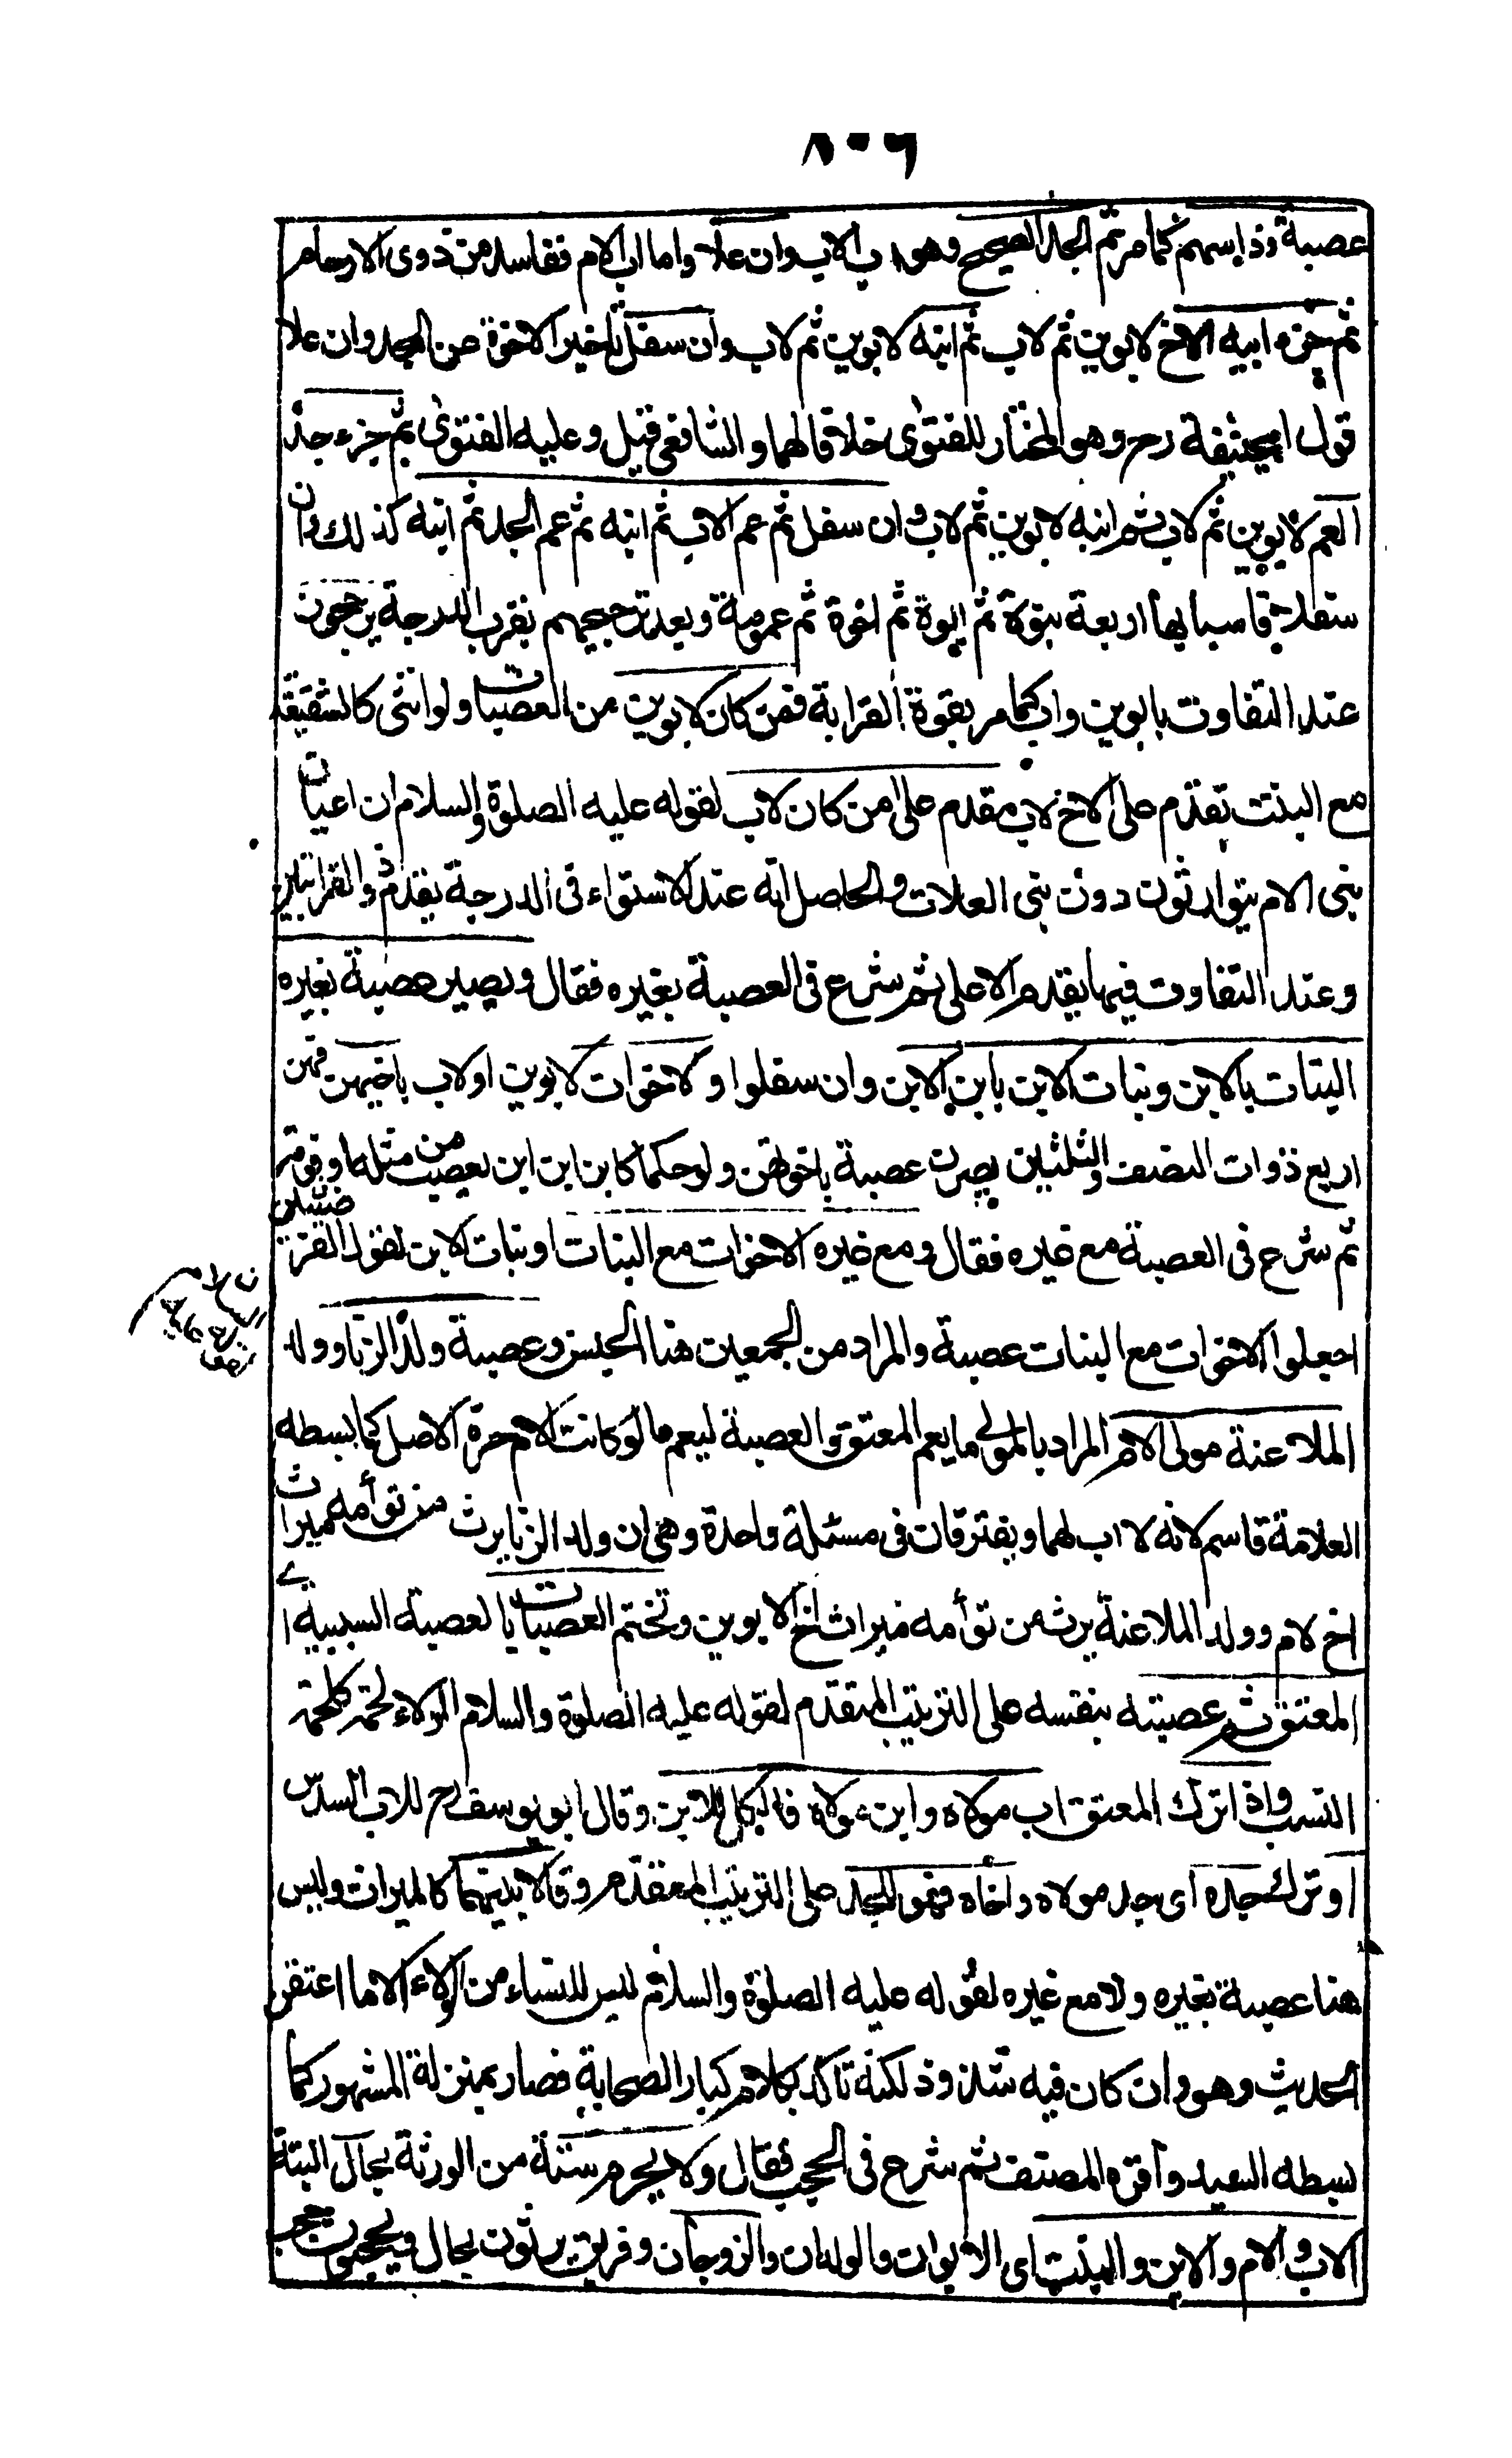 ٨٠٦
عصبة وذا سهم كما مر ثم الجد الصحيح وهو اب الاب وان علا واما اب الام ففاسد من ذوى الارحام
ثم جزء ابيه الاخ لابوين ثم لاب ثم ابنه لابوين ثم لاب وان سفل تأخير الاخوة عن الجد وان علا
قول ابيحنيفة رح وهو المختار للفتوى خلافا لهما والشافعى قيل وعليه الفتوى ثم جزء جده
العم لابوين ثم لاب ثم ابنه لابوين ثم لاب وان سفل ثم عم الاب ثم ابنه ثم عم الجد ثم ابنه كذلك وان
سفلا فاسبابها اربعة بنوة ثم ابوة ثم اخوة ثم عمومة وبعد ترجيحهم بقرب الدرجة يرجحون
عند التفاوت بابوين واب كما مر بقوة القرابة فمن كان لابوين من العصبات ولو انثى كالشقيقة
مع البنت تقدم على الاخ لاب مقدم على من كان لاب لقوله عليه الصلوة والسلام ان اعيان
بنى الام يتوارثون دون بنى العلات والحاصل انه عند الاستواء فى الدرجة يقدم ذو القرابتين
وعند التفاوت فيها يقدم الاعلى ثم شرع فى العصبة بغيره فقال ويصير عصبة بغيره
البنات بالابن وبنات الابن بابن الابن وان سفلوا والاخوات لابوين او لاب باخيهن فهن
اربع ذوات النصف والثلثين يصرن عصبة باخوتهن ولو حكما كابن ابن ابن يعصب من مثله او فوقه
ثم شرع فى العصبة مع غيره فقال ومع غيره الاخوات مع البنات او بنات الابن لقول الفرضيين
اجعلوا الاخوات مع البنات عصبة والمراد من الجمعين هنا الجنس وعصبة ولد الزنا وولد
الملاعنة مولى الام المراد بالمولى ما يعم المعتق والعصبة ليعم ما لو كانت الام حرة الاصل كما بسطه
العلامة قاسم لانه لا اب لهما ويفترقان فى مسئلة واحدة وهى ان ولد الزنا يرث من توأمه ميراث
اخ لام وولد الملاعنة يرث من توأمه ميراث اخ لابوين وتختم العصبات بالعصبة السببية اى
المعتق ثم عصبته بنفسه على الترتيب المتقدم لقوله عليه الصلوة والسلام الولاء لحمة كلحمة
النسب واذا ترك المعتق اب مولاه وابن مولاه فالكل للابن وقال ابو يوسف رح للاب السدس
او ترك جده اى جد مولاه واخاه فهو للجد على الترتيب المتقدم وقالا بينهما كالميراث وليس
هنا عصبة بغيره ولا مع غيره لقوله عليه الصلوة والسلام ليس للنساء من الولاء الا ما اعتقن
الحديث وهو وان كان فيه شذوذ لكنه تأكد بكلام كبار الصحابة فصار بمنزلة المشهور كما
بسطه السيد واقره المصنف ثم شرع فى الحجب فقال ولا يحرم ستة من الورثة بحال البتة
الاب والام والابن والبنت اى الابوان والولدان والزوجان وفريق يرثون بحال ويحجبون حجب